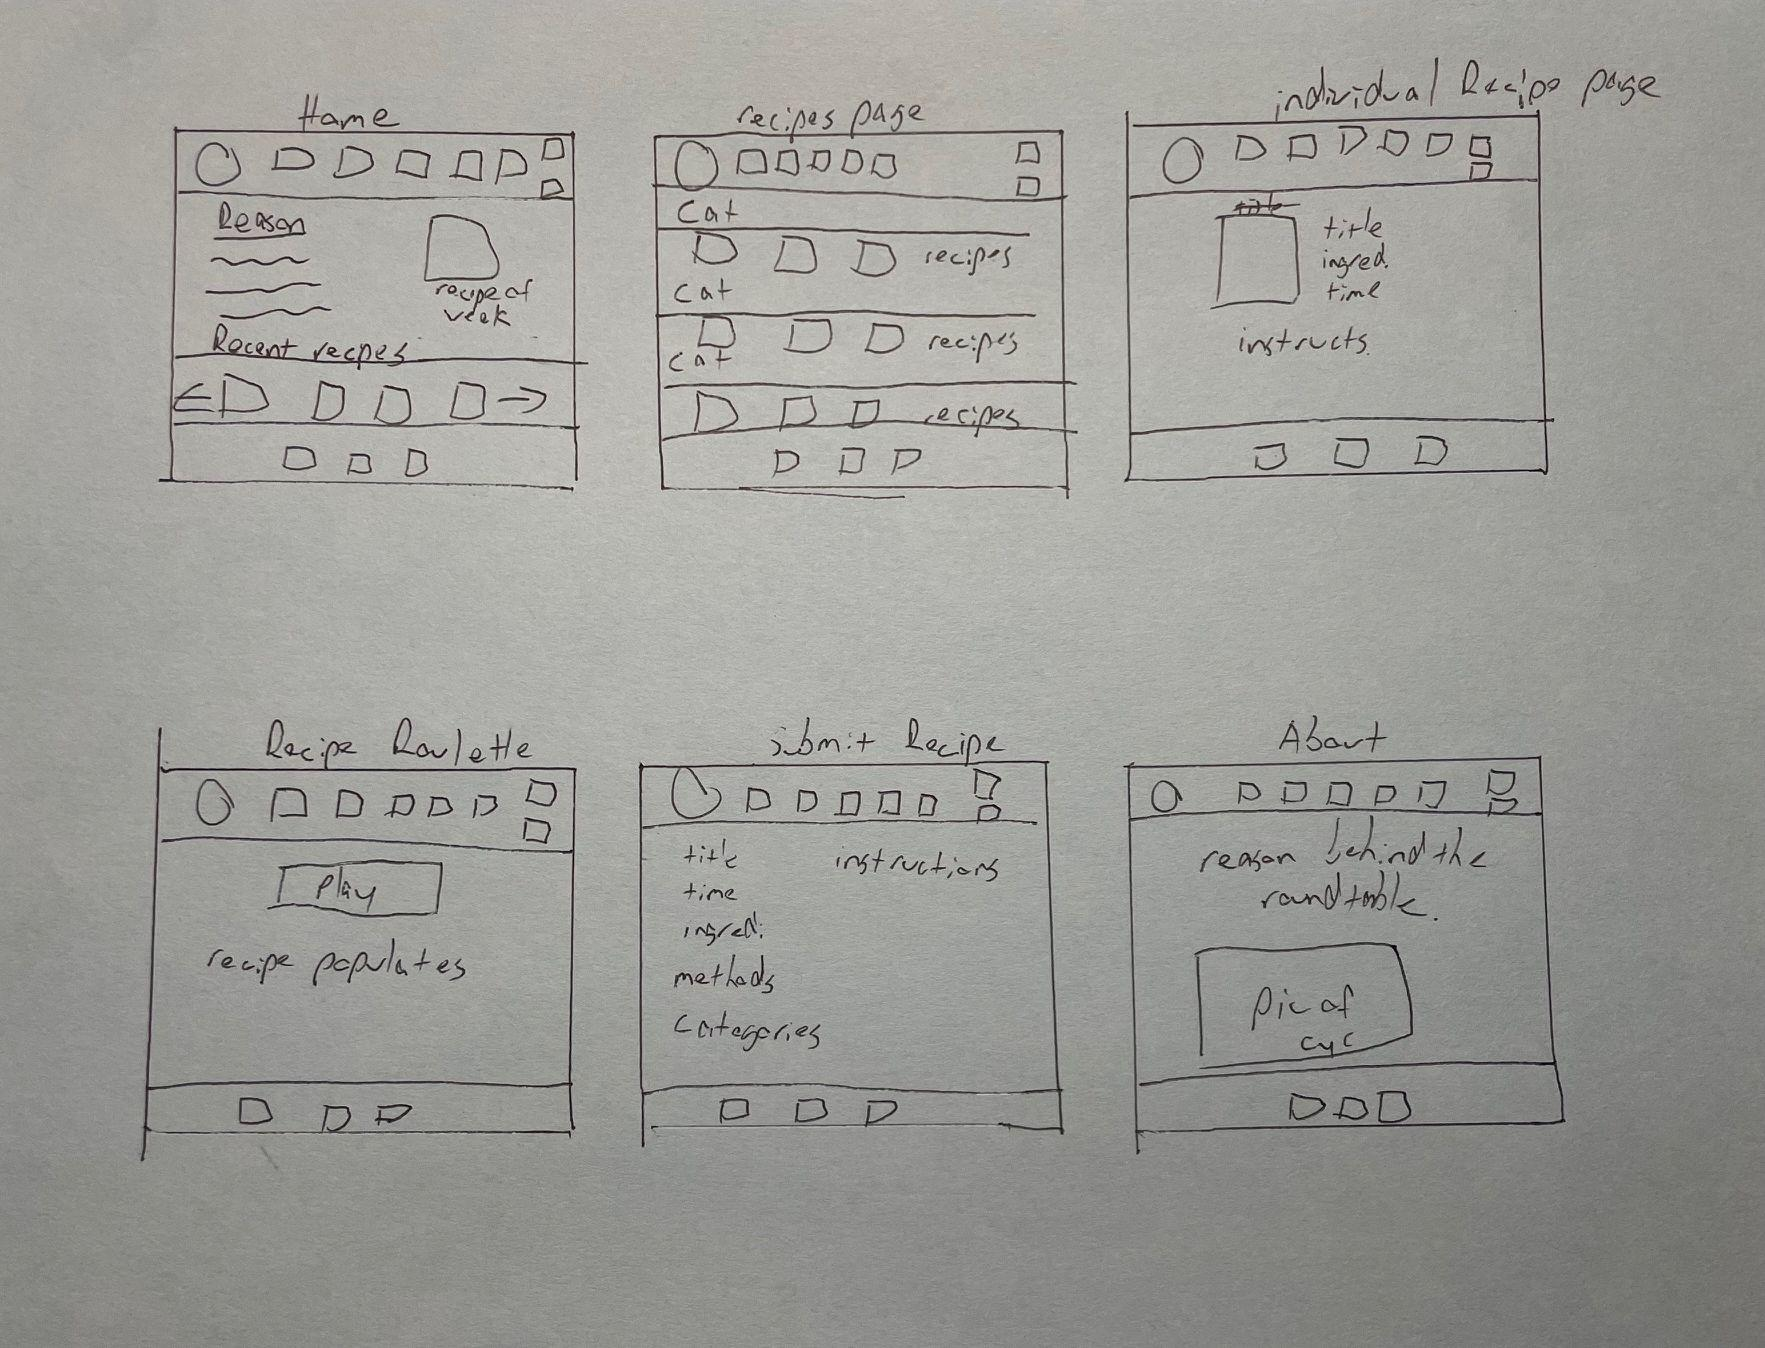 Home
Reason
recipe of
week
Recent recpes
recipes page
Cat
recipes
Cat
recipes
Cat
recipes
individual Recipe page
title
title
ingred.
time
instructs.
Recipe Roulette
Play
recipe populates
submit Recipe
title
time
ingred.
methods
Categories
instructions
About
reason behind the
roundtable.
Pic of
cyc